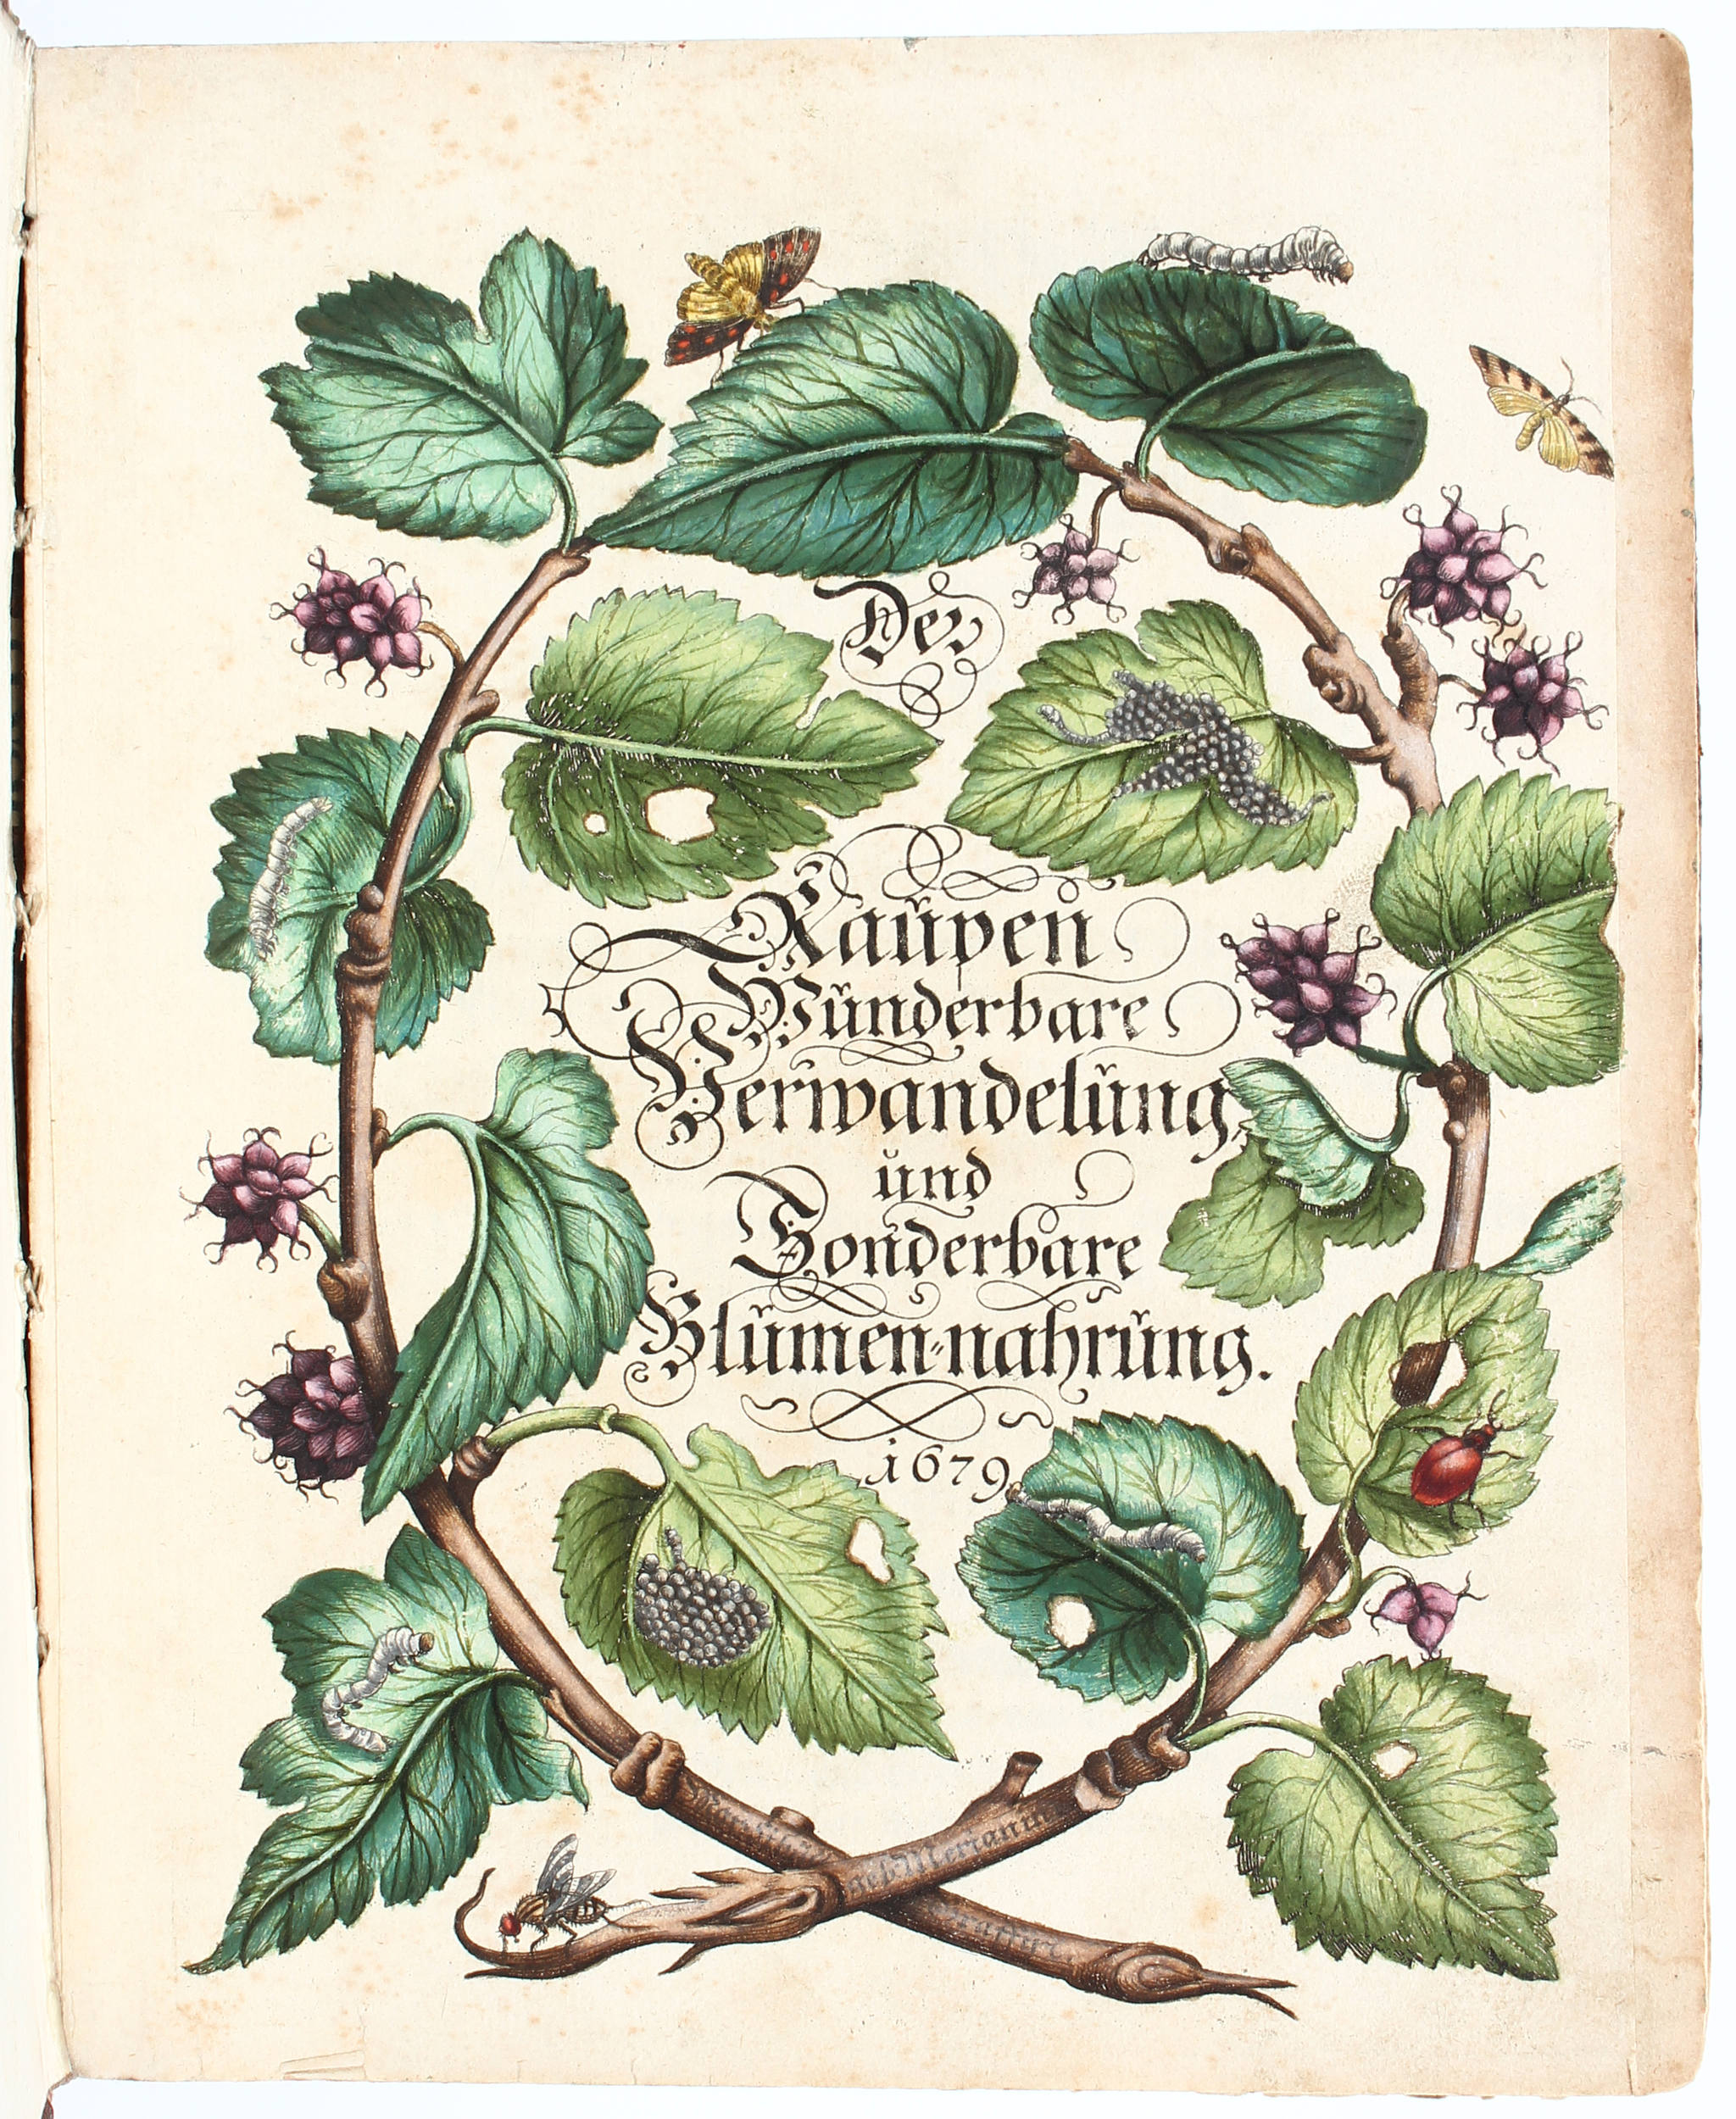 Der
Raupen
Wunderbare
Verwandelung,
und
Sonderbare
Blumen-nahrung.
1679.
geb. Merianin
Graffin.